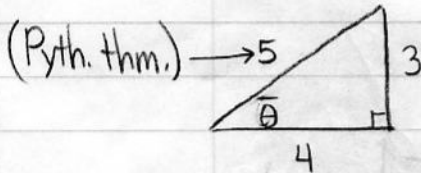 (Pyth. thm.) → 5
3
θ̅
4